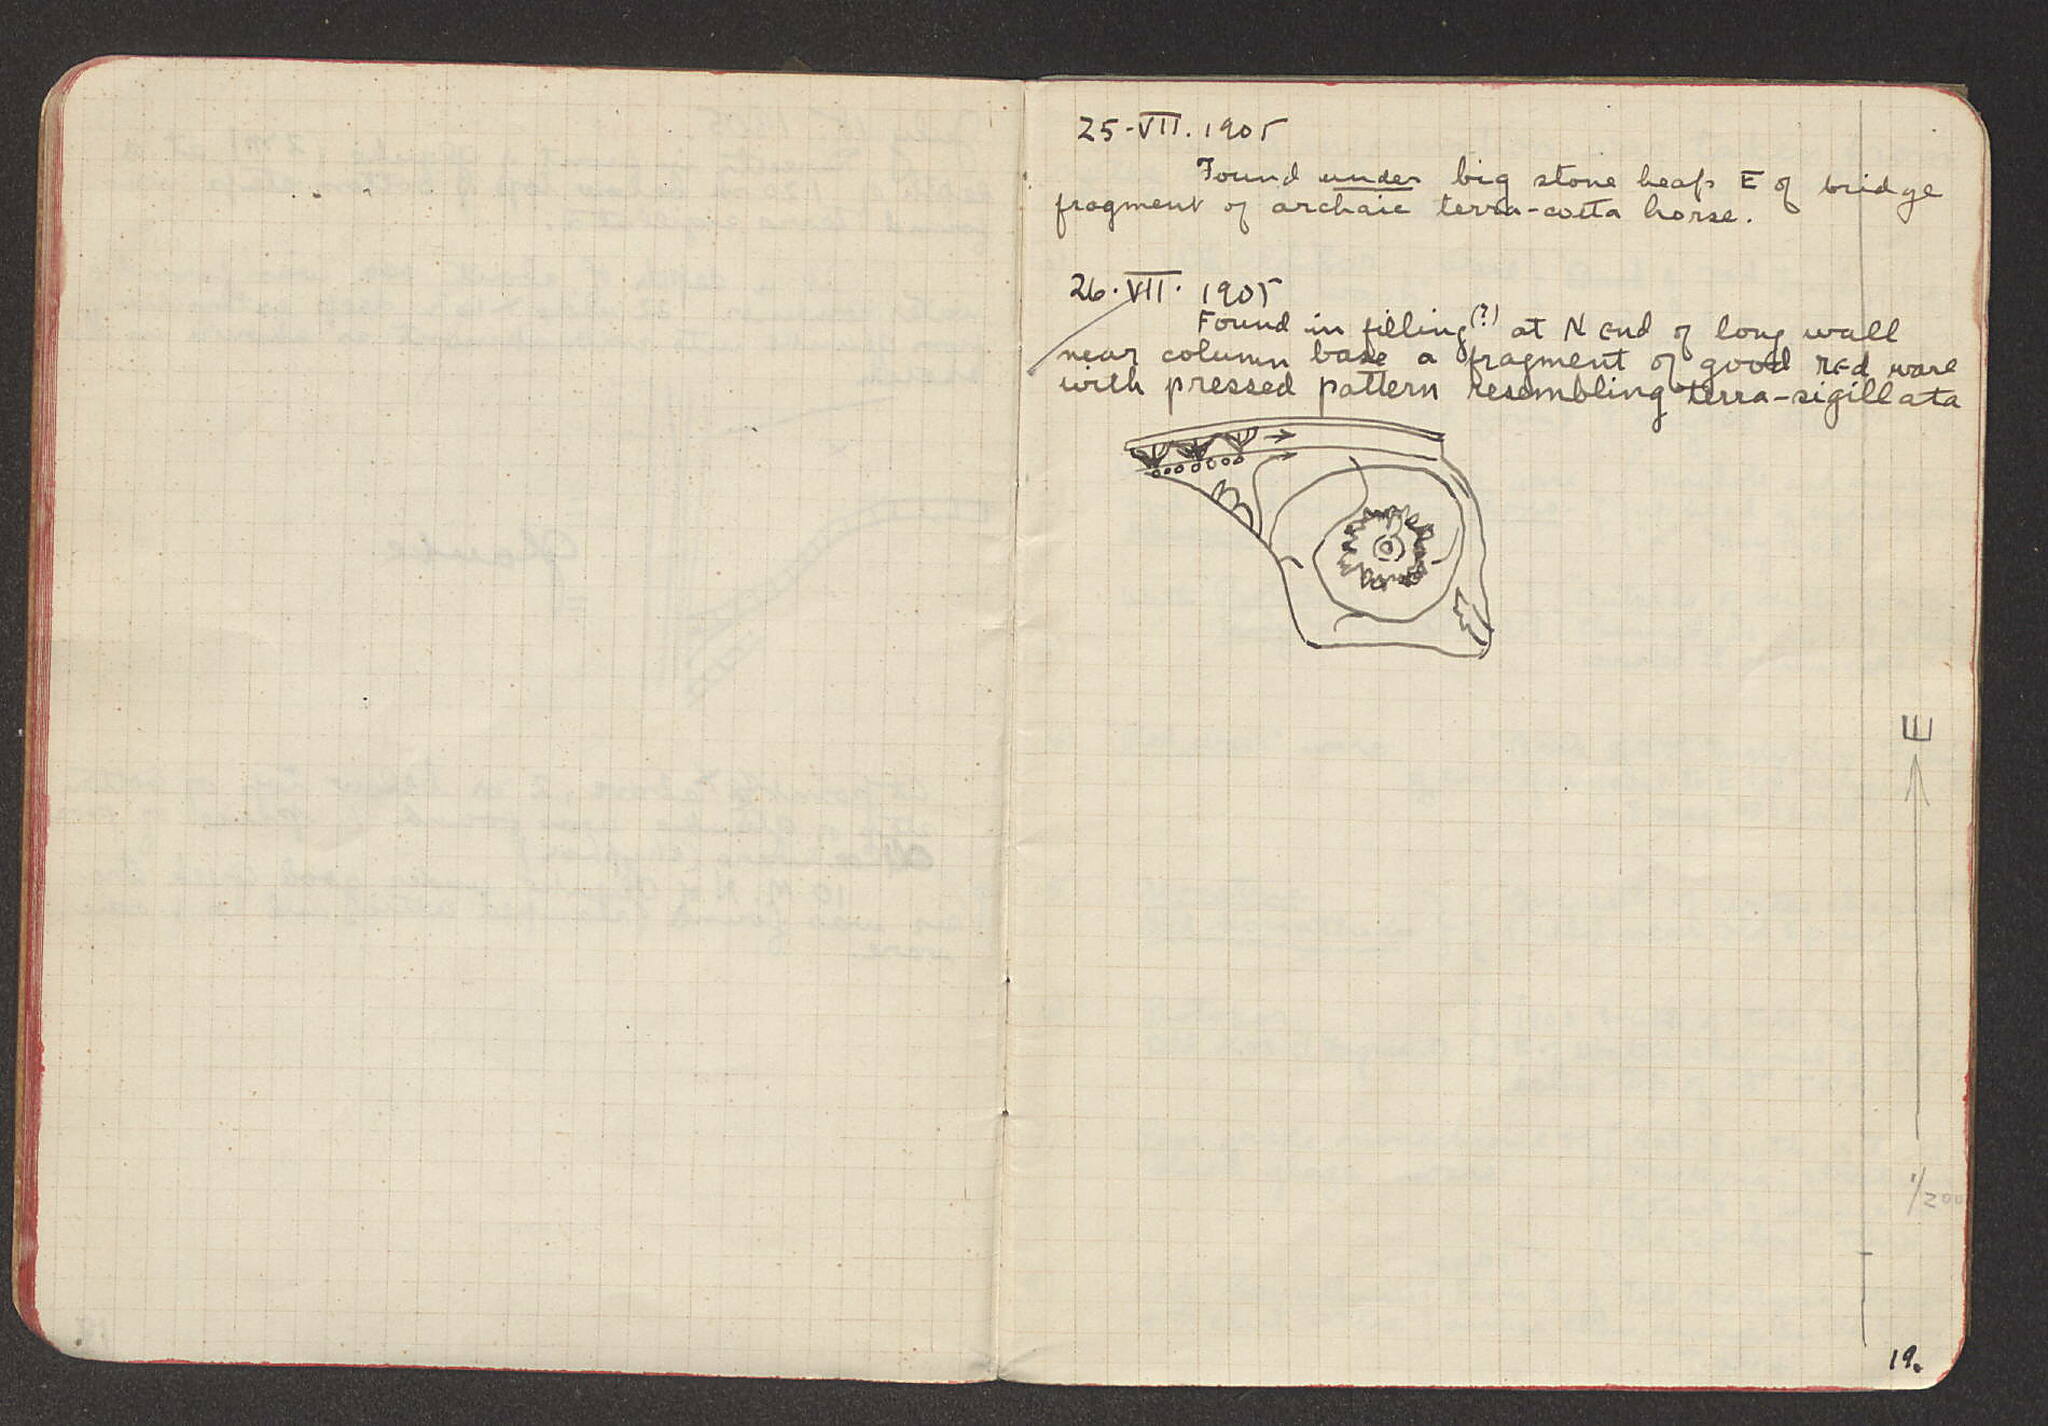 25-VII. 1905
Found under big stone heap E of bridge
fragment of archaic terra-cotta horse.
26. VII. 1905
Found in filling (?) at N End of long wall
near column base a fragment of good red ware
with pressed pattern resembling terra-sigillata
E
1/200
19.